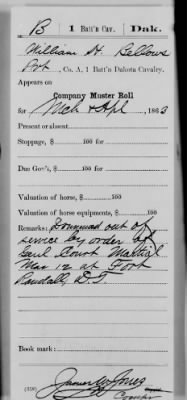 B | 1 Batt'n Cav. | Dak.
William H. Bellows
Pvt, Co. A, 1 Batt'n Dakota Cavalry.
Appears on
Company Muster Roll
for Mch & Apl, 1863
Present or absent
Stoppage, $ 100 for
Due Gov't, $ 100 for
Valuation of horse, $ 100
Valuation of horse equipments, $ 100
Remarks: Drummed out of
service by order of
Genl Court Martial
Mar 12 at Fort
Randall, D.T.
Book mark:
James W Jones
(359) Copyist.